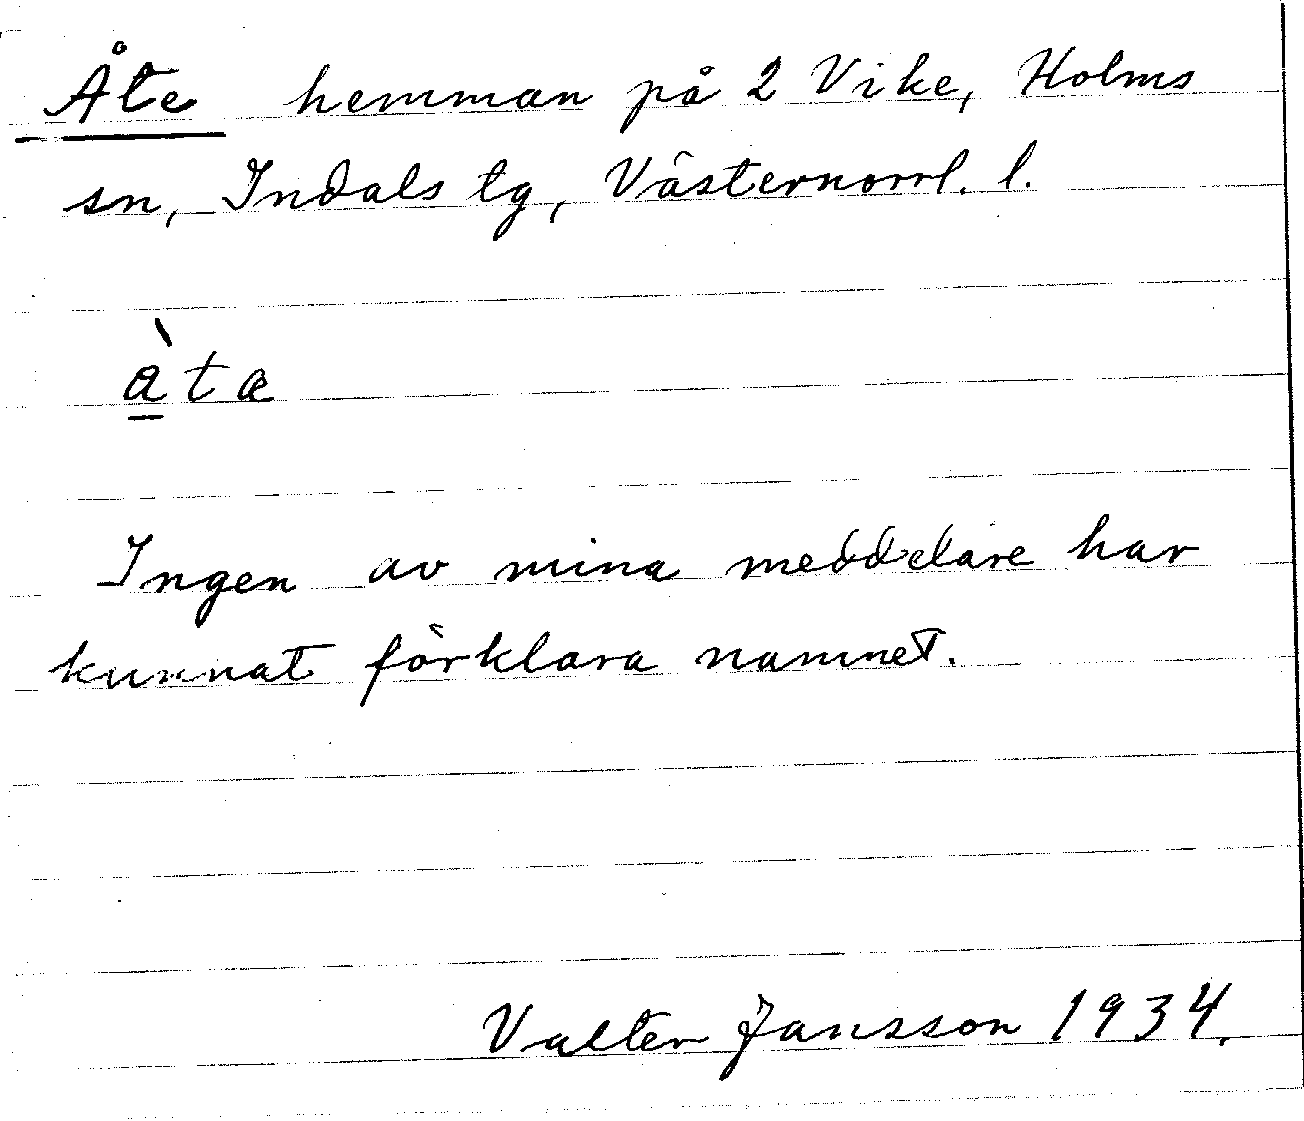 Åte hemman på 2 Vike, Holms
sn, Indals tg, Västernorrl. l.
à̱ta
Ingen av mina meddelare har
kunnat förklara namnet.
Valter Jansson 1934.